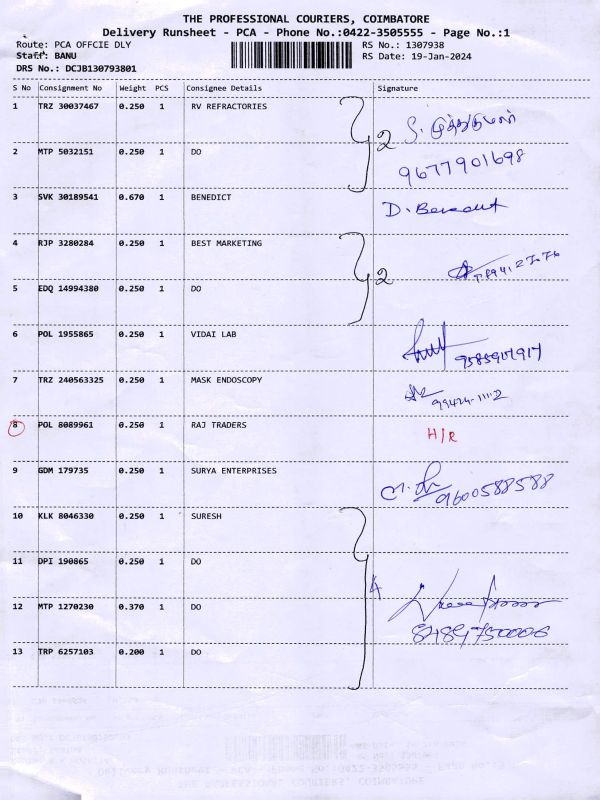 THE PROFESSIONAL COURIERS, COIMBATORE
Delivery Runsheet - PCA - Phone No.:0422-3505555 - Page No.:1
Route: PCA OFFCIE DLY RS No.: 1307938
Staff: BANU RS Date: 19-Jan-2024
DRS No.: DCJB130793801
S No Consignment No Weight PCS Consignee Details Signature
1 TRZ 30037467 0.250 1 RV REFRACTORIES
2 MTP 5032151 0.250 1 DO 2 9677901698
3 SVK 30189541 0.670 1 BENEDICT D. Benedict
4 RJP 3280284 0.250 1 BEST MARKETING
5 EDQ 14994380 0.250 1 DO 2
6 POL 1955865 0.250 1 VIDAI LAB
7 TRZ 240563325 0.250 1 MASK ENDOSCOPY
8 POL 8089961 0.250 1 RAJ TRADERS H/R
9 GDM 179735 0.250 1 SURYA ENTERPRISES 9600588588
10 KLK 8046330 0.250 1 SURESH
11 DPI 190865 0.250 1 DO 4
12 MTP 1270230 0.370 1 DO
13 TRP 6257103 0.200 1 DO